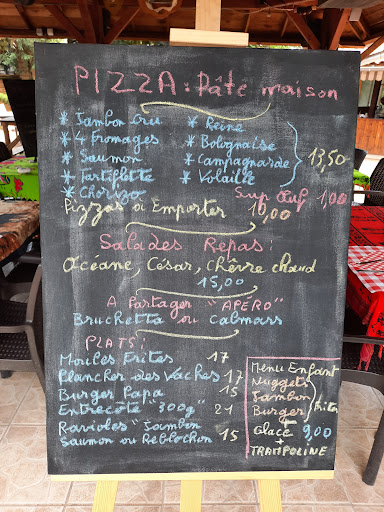 PIZZA : Pâte maison
* Jambon Cru * Reine
* 4 Fromages * Bolognaise
* Saumon * Campagnarde 13,50
* Tartiflette * Volaille
* Chorizo Sup Œuf 1,00
Pizzas à Emporter 10,00
Salades Repas :
Océane, César, Chèvre chaud
15,00
A Partager "APÉRO"
Bruchetta ou Calmars
PLATS :
Moules Frites 17
Plancher des Vaches 17
Burger Papa 15
Entrecôte "300g" 21
Ravioles "Jambon
Saumon ou Reblochon 15
Menu Enfant
Nuggets
Jambon
Burger Frites
+
Glace 9,00
+ TRAMPOLINE